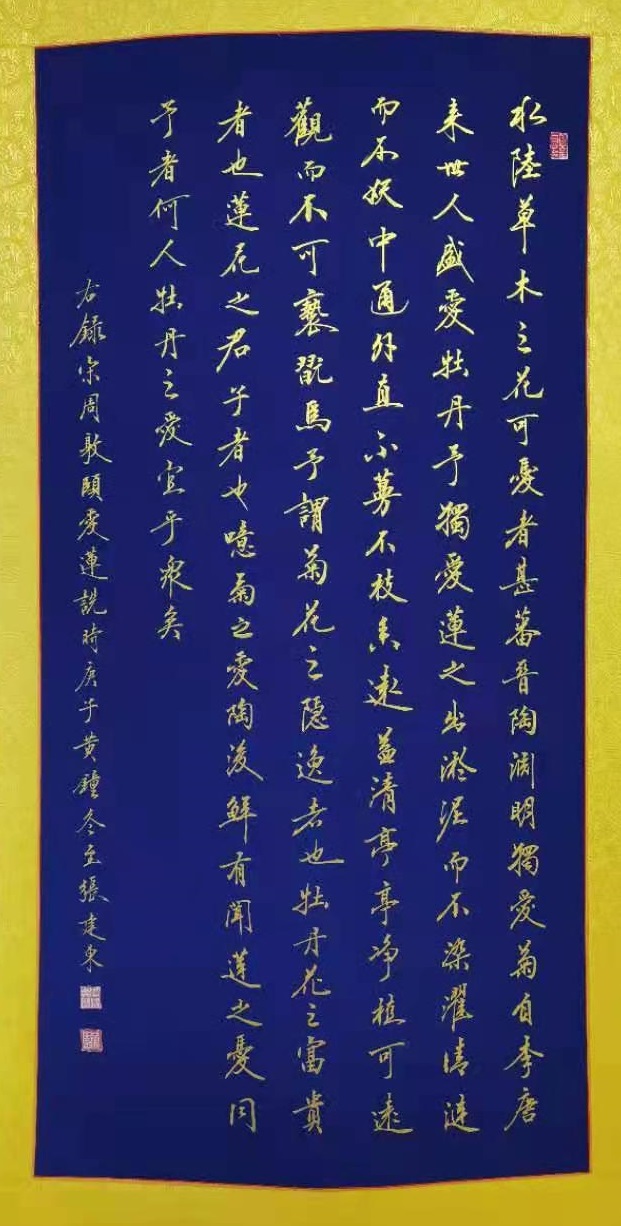 水陸草木之花可愛者甚蕃晉陶淵明獨愛菊自李唐
来世人盛愛牡丹予獨愛蓮之出淤泥而不染濯清漣
而不妖中通外直不蔓不枝香遠益清亭亭净植可遠
觀而不可褻翫焉予謂菊花之隱逸者也牡丹花之富貴
者也蓮花之君子者也噫菊之愛陶後鮮有聞蓮之愛同
予者何人牡丹之愛宜乎衆矣
右錄宋周敦頤愛蓮説時庚子黄鐘冬至張建東